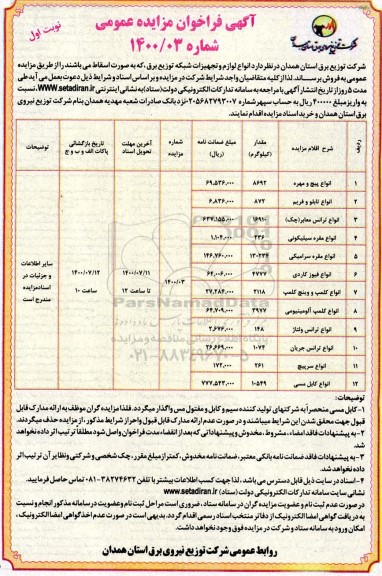 آگهی فراخوان مزایده عمومی
شماره ۱۴۰۰/۰۳
نوبت اول
شرکت توزیع نیروی برق استان همدان
شرکت توزیع برق استان همدان در نظر دارد انواع لوازم و تجهیزات شبکه توزیع برق، که به صورت اسقاط می باشند را از طریق مزایده
عمومی به فروش برساند. لذا از کلیه متقاضیان واجد شرایط شرکت در مزایده و بر اساس اسناد و شرایط ذیل دعوت بعمل می آید طی
مدت ۵ روز از تاریخ انتشار آگهی با مراجعه به سامانه تدارکات الکترونیکی دولت (ستاد) به نشانی اینترنتی WWW.setadiran.ir، نسبت
به واریز مبلغ ۴۰۰۰۰۰ ریال به حساب سپهر شماره ۰۲۰۵۶۸۲۷۹۳۰۰۷ نزد بانک صادرات شعبه مهدیه همدان بنام شرکت توزیع نیروی
برق استان همدان و خرید اسناد مزایده اقدام نمایند.
ردیف | شرح اقلام مزایده | مقدار (کیلوگرم) | مبلغ ضمانت نامه (ریال) | شماره مزایده | آخرین مهلت تحویل اسناد | تاریخ بازگشائی پاکات الف و ب و ج | توضیحات
۱ | انواع پیچ و مهره | ۸۶۹۲ | ۶۹,۵۳۶,۰۰۰
۲ | انواع تابلو و فریم | ۸۷۲ | ۶,۸۳۶,۰۰۰
۳ | انواع ترانس معابر(چک) | ۱۶۹۱۰ | ۶۳۷,۱۵۵,۰۰۰
۴ | انواع مقره سیلیکونی | ۳۳۶ | ۱,۱۰۴,۰۰۰
۵ | انواع مقره سرامیکی | ۱۳۰۲۳۴ | ۱۴۶,۷۶۰,۰۰۰
۶ | انواع فیوز کاردی | ۴۷۷۷ | ۶۴,۰۰۶,۰۰۰
۷ | انواع کلمپ و وینچ کلمپ | ۲۱۱۸ | ۲۷,۴۸۴,۰۰۰
۸ | انواع کلمپ آلومینیومی | ۳۹۷۷ | ۶۴,۷۰۹,۰۰۰
۹ | انواع ترانس ولتاژ | ۱۴۸ | ۲,۶۷۶,۰۰۰
۱۰ | انواع ترانس جریان | ۱۰۷۴ | ۲۶,۶۶۹,۰۰۰
۱۱ | انواع سرپیچ | ۲۶۱ | ۱۷۲,۰۰۰
۱۲ | انواع کابل مسی | ۱۰۵۴۹ | ۷۷۷,۵۴۲,۰۰۰
۱۴۰۰/۰۳ | ۱۴۰۰/۰۷/۱۱ تا ساعت ۱۲ | ۱۴۰۰/۰۷/۱۲ ساعت ۱۰ | سایر اطلاعات و جزئیات در اسناد مزایده مندرج است
توضیحات:
۱- کابل مسی منحصراً به شرکتهای تولید کننده سیم و کابل و مفتول مس واگذار میگردد، فلذا مزایده گران موظف به ارائه مدارک قابل
قبول جهت محقق شدن این شرایط میباشند و در صورت عدم ارائه مدارک قابل قبول و احراز شرایط مذکور، از مزایده حذف میگردند.
۲- به پیشنهادات فاقد امضاء، مشروط، مخدوش و پیشنهاداتی که بعد از انقضاء مدت فراخوان واصل شود مطلقاً ترتیب اثر داده نخواهد
شد.
۳- به پیشنهادات فاقد ضمانت نامه بانکی معتبر، ضمانت نامه مخدوش، کمتر از مبلغ مقرر، چک شخصی و شرکتی و نظایر آن ترتیب اثر
داده نخواهد شد.
۴- اسناد در سایت ذیل قابل دسترس می باشد، لذا جهت کسب اطلاعات بیشتر با تلفن ۳۸۲۷۴۶۳۲-۰۸۱ تماس حاصل فرمایید.
نشانی سایت سامانه تدارکات الکترونیکی دولت (ستاد) www.setadiran.ir
در صورت عدم ثبت نام و عضویت مزایده گران در سامانه ستاد، ضروری است مراحل ثبت نام و عضویت در سامانه مذکور انجام و نسبت
به دریافت گواهی امضا الکترونیک از دفاتر منتخب اسناد رسمی اقدام گردد. بدیهی است در صورت عدم اخذ گواهی امضا الکترونیک،
امکان ورود به سامانه ستاد و شرکت در مزایده فوق وجود نخواهد داشت.
روابط عمومی شرکت توزیع نیروی برق استان همدان